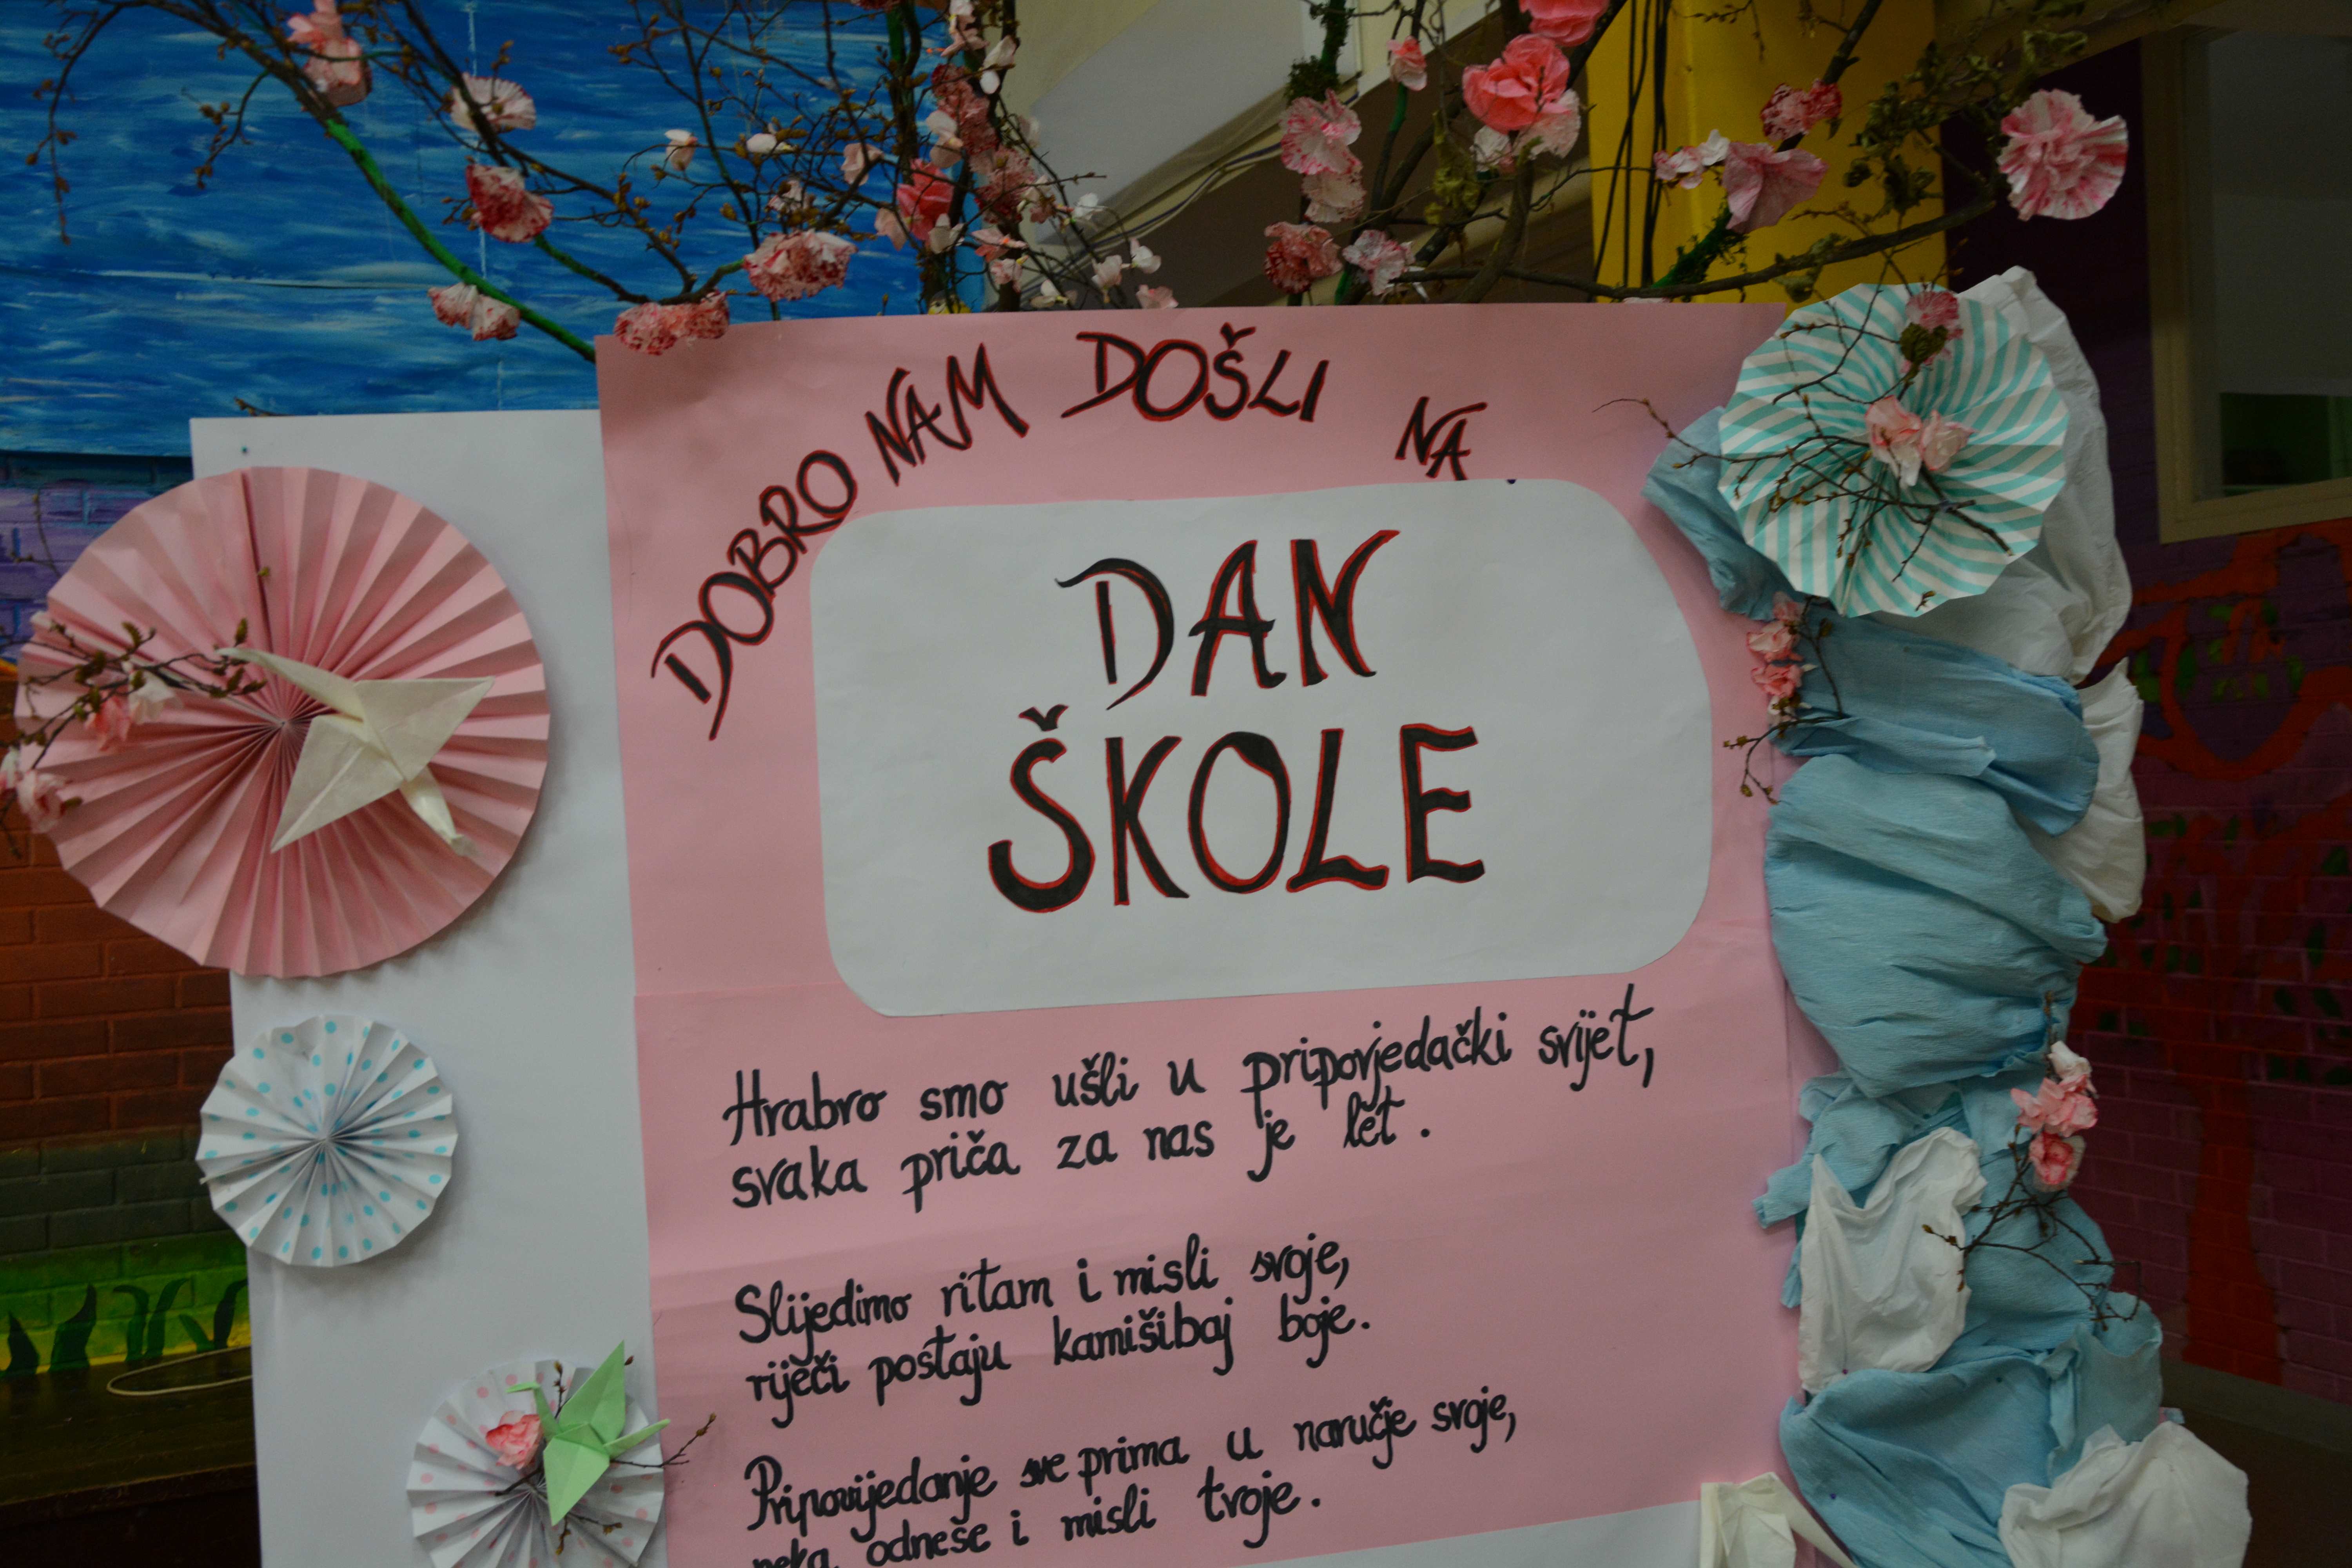 DOBRO NAM DOŠLI NA
DAN
ŠKOLE
Hrabro smo ušli u pripovjedački svijet,
svaka priča za nas je let.
Slijedimo ritam i misli svoje,
riječi postaju kamišibaj boje.
Pripovijedanje sve prima u naručje svoje,
neka odneše i misli tvoje.